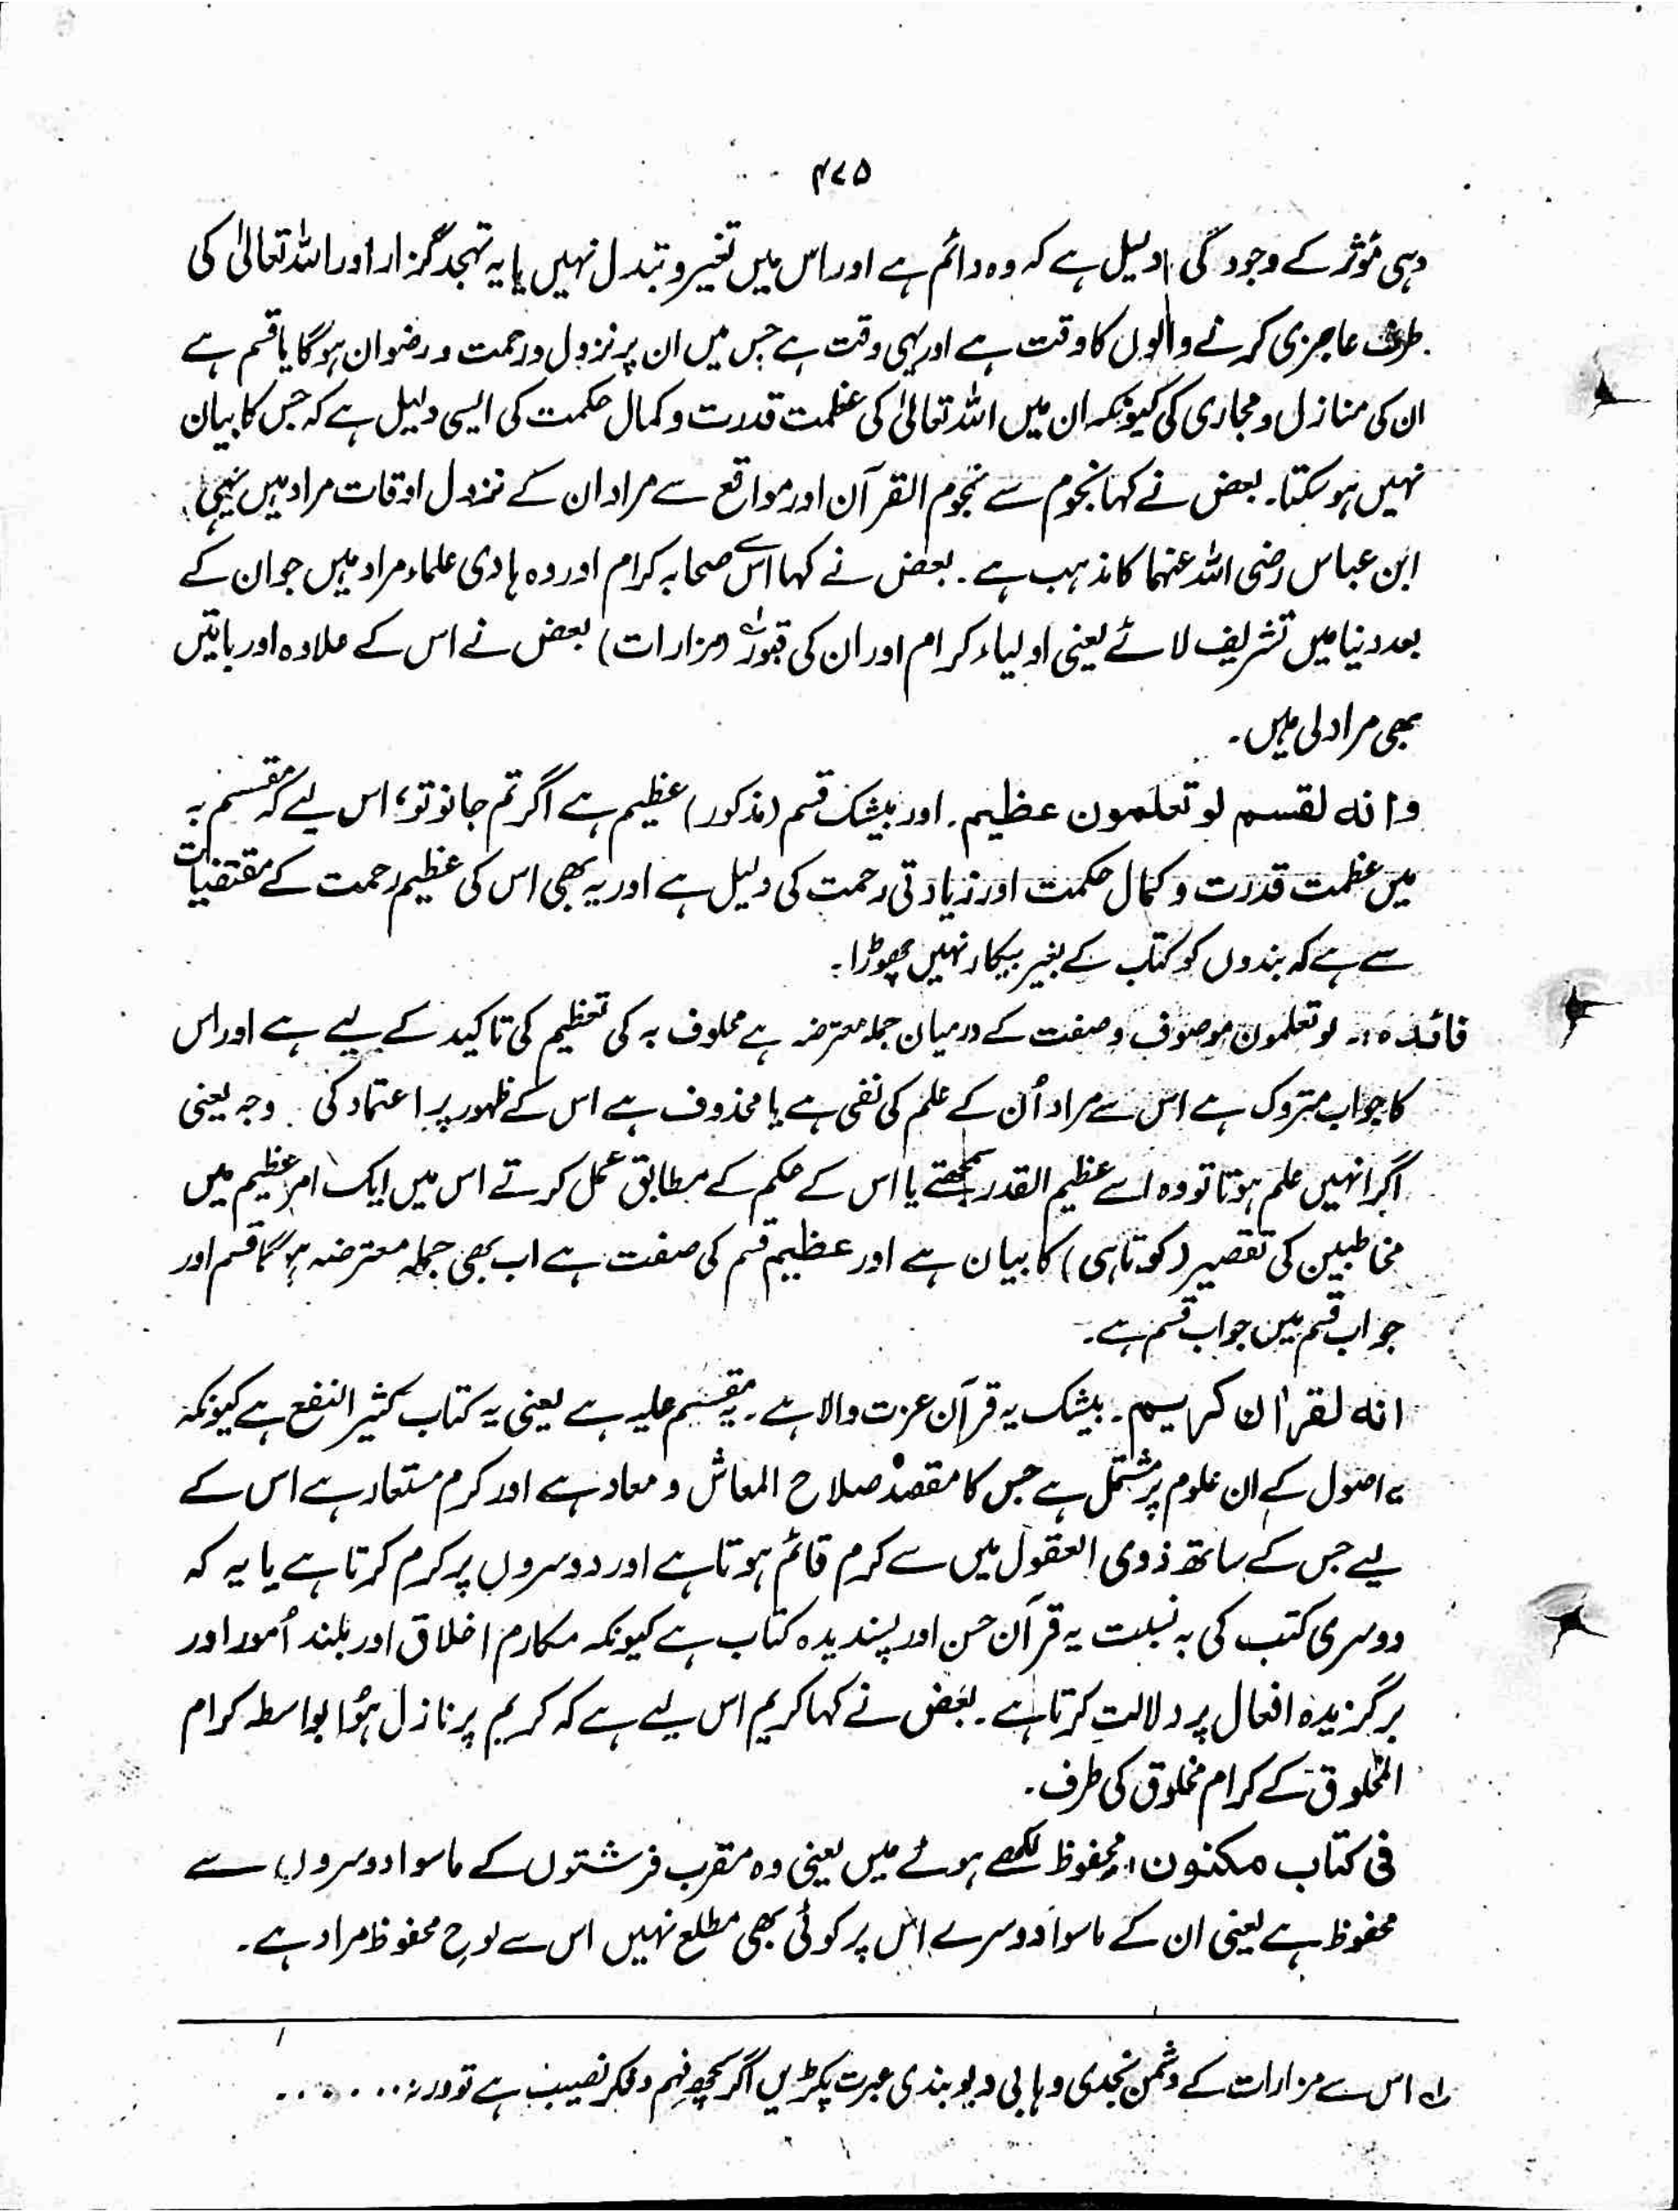 ۴۷۵
وہی مؤثر کے وجود گی دلیل ہے کہ وہ دائم ہے اور اس میں تغیر و تبدل نہیں یا یہ تہجد گزار اور اللہ تعالیٰ کی
طرف عاجزی کرنے والوں کا وقت ہے اور یہی وقت ہے جس میں ان پر نزول و رحمت و رضوان ہوگا یا قسم ہے
ان کی منازل و مجاری کی کیونکہ ان میں اللہ تعالیٰ کی عظمت قدرت و کمال حکمت کی ایسی دلیل ہے کہ جس کا بیان
نہیں ہو سکتا۔ بعض نے کہا نجوم سے نجوم القرآن اور مواقع سے مراد ان کے نزول اوقات مراد ہیں یہی
ابن عباس رضی اللہ عنہما کا مذہب ہے۔ بعض نے کہا اس سے صحابہ کرام اور وہ ہادی علماء مراد ہیں جو ان کے
بعد دنیا میں تشریف لائے یعنی اولیاء کرام اور ان کی قبور لہ (مزارات) بعض نے اس کے علاوہ اور باتیں
بھی مراد لی ہیں۔
وانه لقسم لو تعلمون عظیم۔ اور بیشک قسم (مذکور) عظیم ہے اگر تم جانو تو، اس لیے کہ مقسم بہ
میں عظمت قدرت و کمال حکمت اور زیادتی رحمت کی دلیل ہے اور یہ بھی اس کی عظیم رحمت کے مقتضیات
سے ہے کہ بندوں کو کتاب کے بغیر بیکار نہیں چھوڑا۔
فائدہ :۔ لو تعلمون موصوف و صفت کے درمیان جملہ معترضہ ہے محلوف بہ کی تعظیم کی تاکید کے لیے ہے اور اس
کا جواب متروک ہے اس سے مراد اُن کے علم کی نفی ہے یا محذوف ہے اس کے ظہور پر اعتماد کی وجہ یعنی
اگر انہیں علم ہوتا تو وہ اسے عظیم القدر سمجھتے یا اس کے حکم کے مطابق عمل کرتے اس میں ایک امر عظیم میں
مخاطبین کی تقصیر (کوتاہی) کا بیان ہے اور عظیم قسم کی صفت ہے اب بھی جملہ معترضہ ہوگا قسم اور
جواب قسم میں جواب قسم ہے۔
انه لقراٰن کریم۔ بیشک یہ قرآن عزت والا ہے۔ یہ مقسم علیہ ہے یعنی یہ کتاب کثیر النفع ہے کیونکہ
یہ اصول کے ان علوم پر مشتمل ہے جس کا مقصد صلاح المعاش و معاد ہے اور کرم مستعار ہے اس کے
لیے جس کے ساتھ ذوی العقول میں سے کرم قائم ہوتا ہے اور دوسروں پر کرم کرتا ہے یا یہ کہ
دوسری کتب کی بہ نسبت یہ قرآن حسن اور پسندیدہ کتاب ہے کیونکہ مکارم اخلاق اور بلند اُمور اور
برگزیدہ افعال پر دلالت کرتا ہے۔ بعض نے کہا کریم اس لیے ہے کہ کریم پر نازل ہُوا بواسطہ کرام
المخلوق کے کرام مخلوق کی طرف۔
فی کتاب مکنون، محفوظ لکھے ہوئے میں یعنی وہ مقرب فرشتوں کے ماسوا دوسروں سے
محفوظ ہے یعنی ان کے ماسوا دوسرے اس پر کوئی بھی مطلع نہیں اس سے لوحِ محفوظ مراد ہے۔
لہ اس سے مزارات کے دشمن نجدی وہابی دیوبندی عبرت پکڑیں اگر کچھ فہم و فکر نصیب ہے تو ورنہ ......